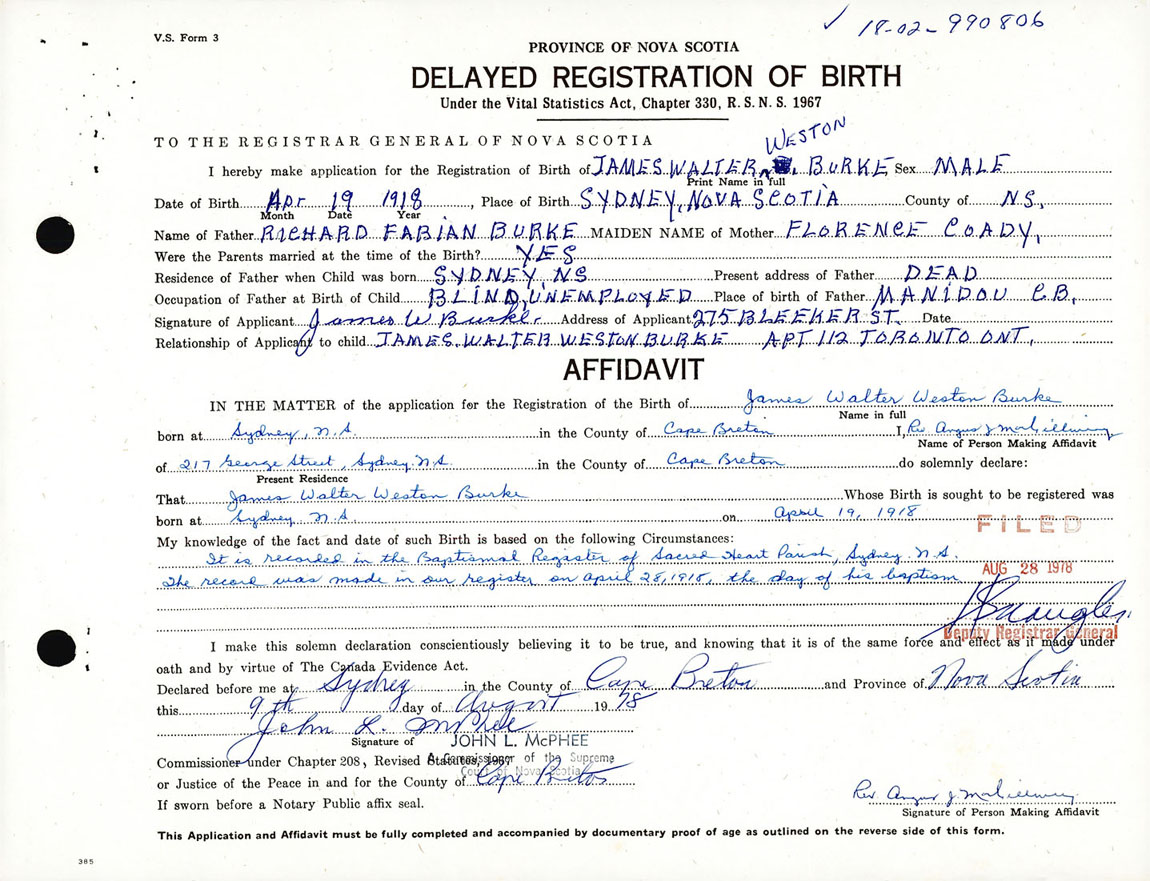 ✓ 18-02-990806
V.S. Form 3
PROVINCE OF NOVA SCOTIA
DELAYED REGISTRATION OF BIRTH
Under the Vital Statistics Act, Chapter 330, R.S.N.S. 1967
TO THE REGISTRAR GENERAL OF NOVA SCOTIA
WESTON
I hereby make application for the Registration of Birth of JAMES WALTER BURKE Sex MALE
Print Name in full
Date of Birth Apr 19 1918, Place of Birth SYDNEY, NOVA SCOTIA County of N.S.,
Month Date Year
Name of Father RICHARD FABIAN BURKE MAIDEN NAME of Mother FLORENCE COADY,
Were the Parents married at the time of the Birth? YES
Residence of Father when Child was born SYDNEY, NS Present address of Father DEAD
Occupation of Father at Birth of Child BLIND, UNEMPLOYED Place of birth of Father MANIDOU C.B.
Signature of Applicant James W Burke. Address of Applicant 275 BLEEKER ST. Date
Relationship of Applicant to child JAMES. WALTER WESTON BURKE APT 112 TORONTO ONT,
AFFIDAVIT
IN THE MATTER of the application for the Registration of the Birth of James Walter Weston Burke
Name in full
born at Sydney, N.S. in the County of Cape Breton I, Rev. Angus J MacGillivray
Name of Person Making Affidavit
of 217 George Street, Sydney N.S. in the County of Cape Breton do solemnly declare:
Present Residence
That James Walter Weston Burke Whose Birth is sought to be registered was
born at Sydney N.S. on April 19, 1918
FILED
My knowledge of the fact and date of such Birth is based on the following Circumstances:
It is recorded in the Baptismal Register of Sacred Heart Parish, Sydney N.S.
The record was made in our register on April 28, 1918, the day of his baptism
AUG 28 1978
Deputy Registrar General
I make this solemn declaration conscientiously believing it to be true, and knowing that it is of the same force and effect as if made under
oath and by virtue of The Canada Evidence Act.
Declared before me at Sydney in the County of Cape Breton and Province of Nova Scotia
this 9th day of August 1978
John L. McPhee
Signature of JOHN L. McPHEE
A Commissioner of the Supreme
Commissioner under Chapter 208, Revised Statutes, 1967
Court of Nova Scotia
or Justice of the Peace in and for the County of Cape Breton
If sworn before a Notary Public affix seal.
Rev. Angus J MacGillivray
Signature of Person Making Affidavit
This Application and Affidavit must be fully completed and accompanied by documentary proof of age as outlined on the reverse side of this form.
385